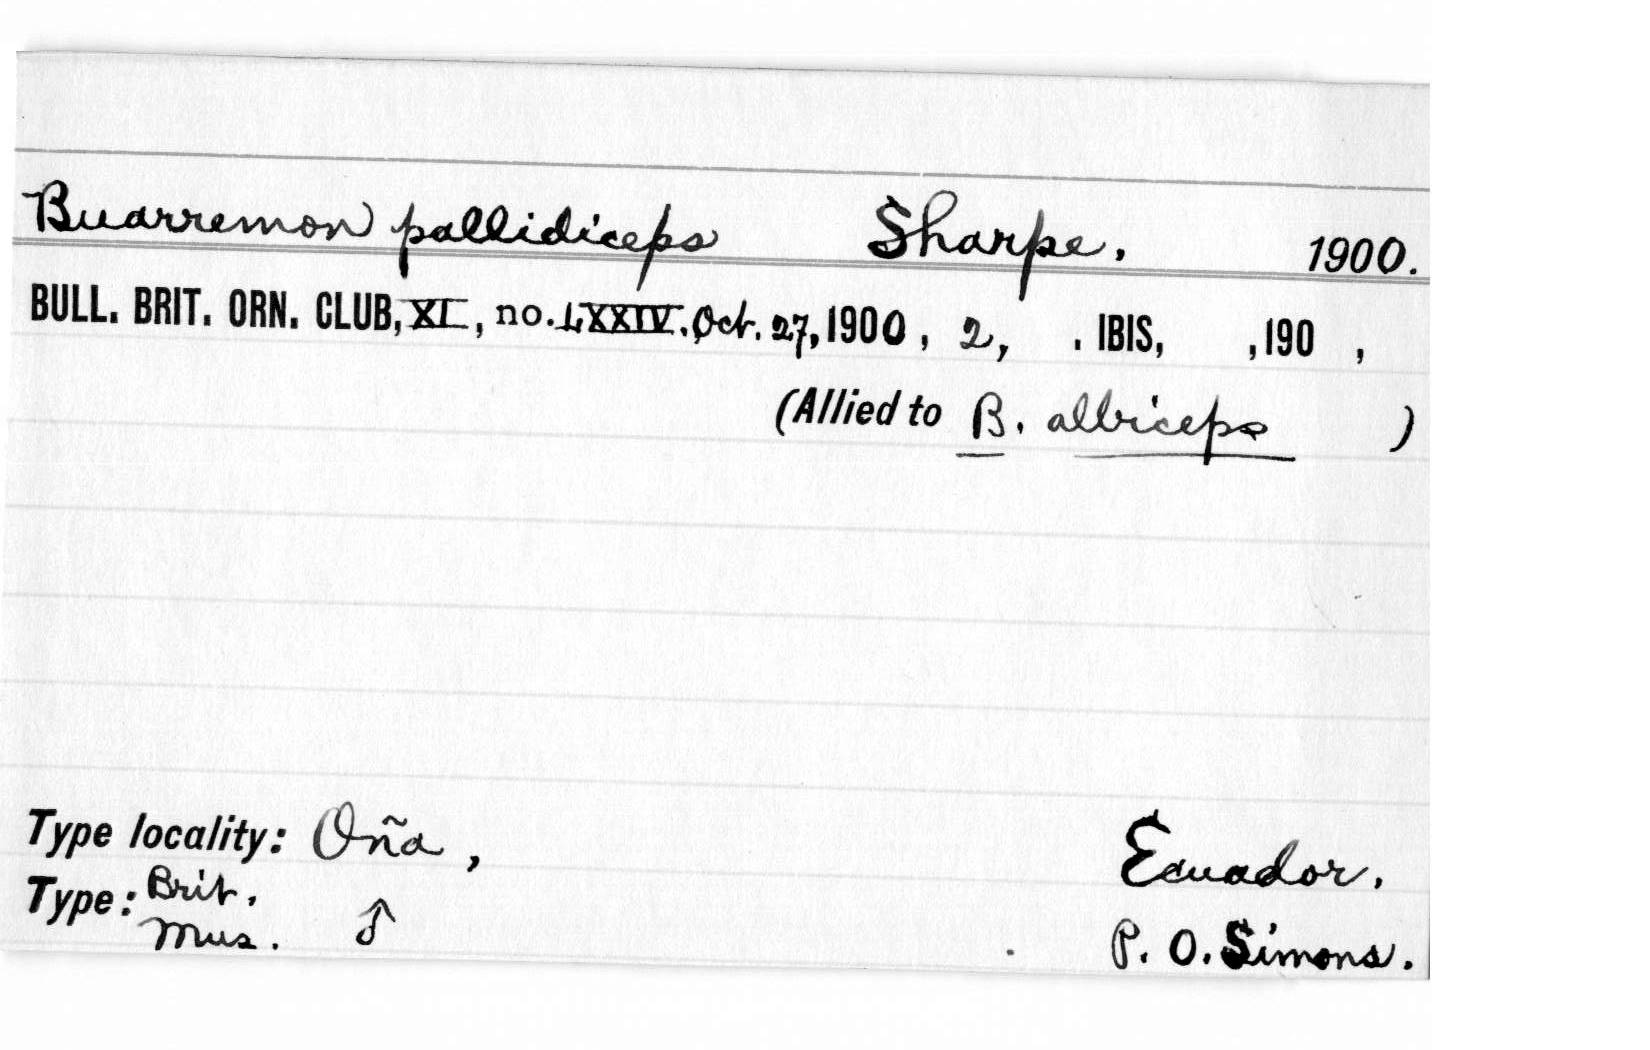 Buarremon pallidiceps Sharpe. 1900.
BULL. BRIT. ORN. CLUB, XI, no. LXXIV. Oct. 27, 1900, 2, . IBIS, ,190 ,
(Allied to B. albiceps )
Type locality: Oña, Ecuador.
Type: Brit. Mus. ♂ P. O. Simons.